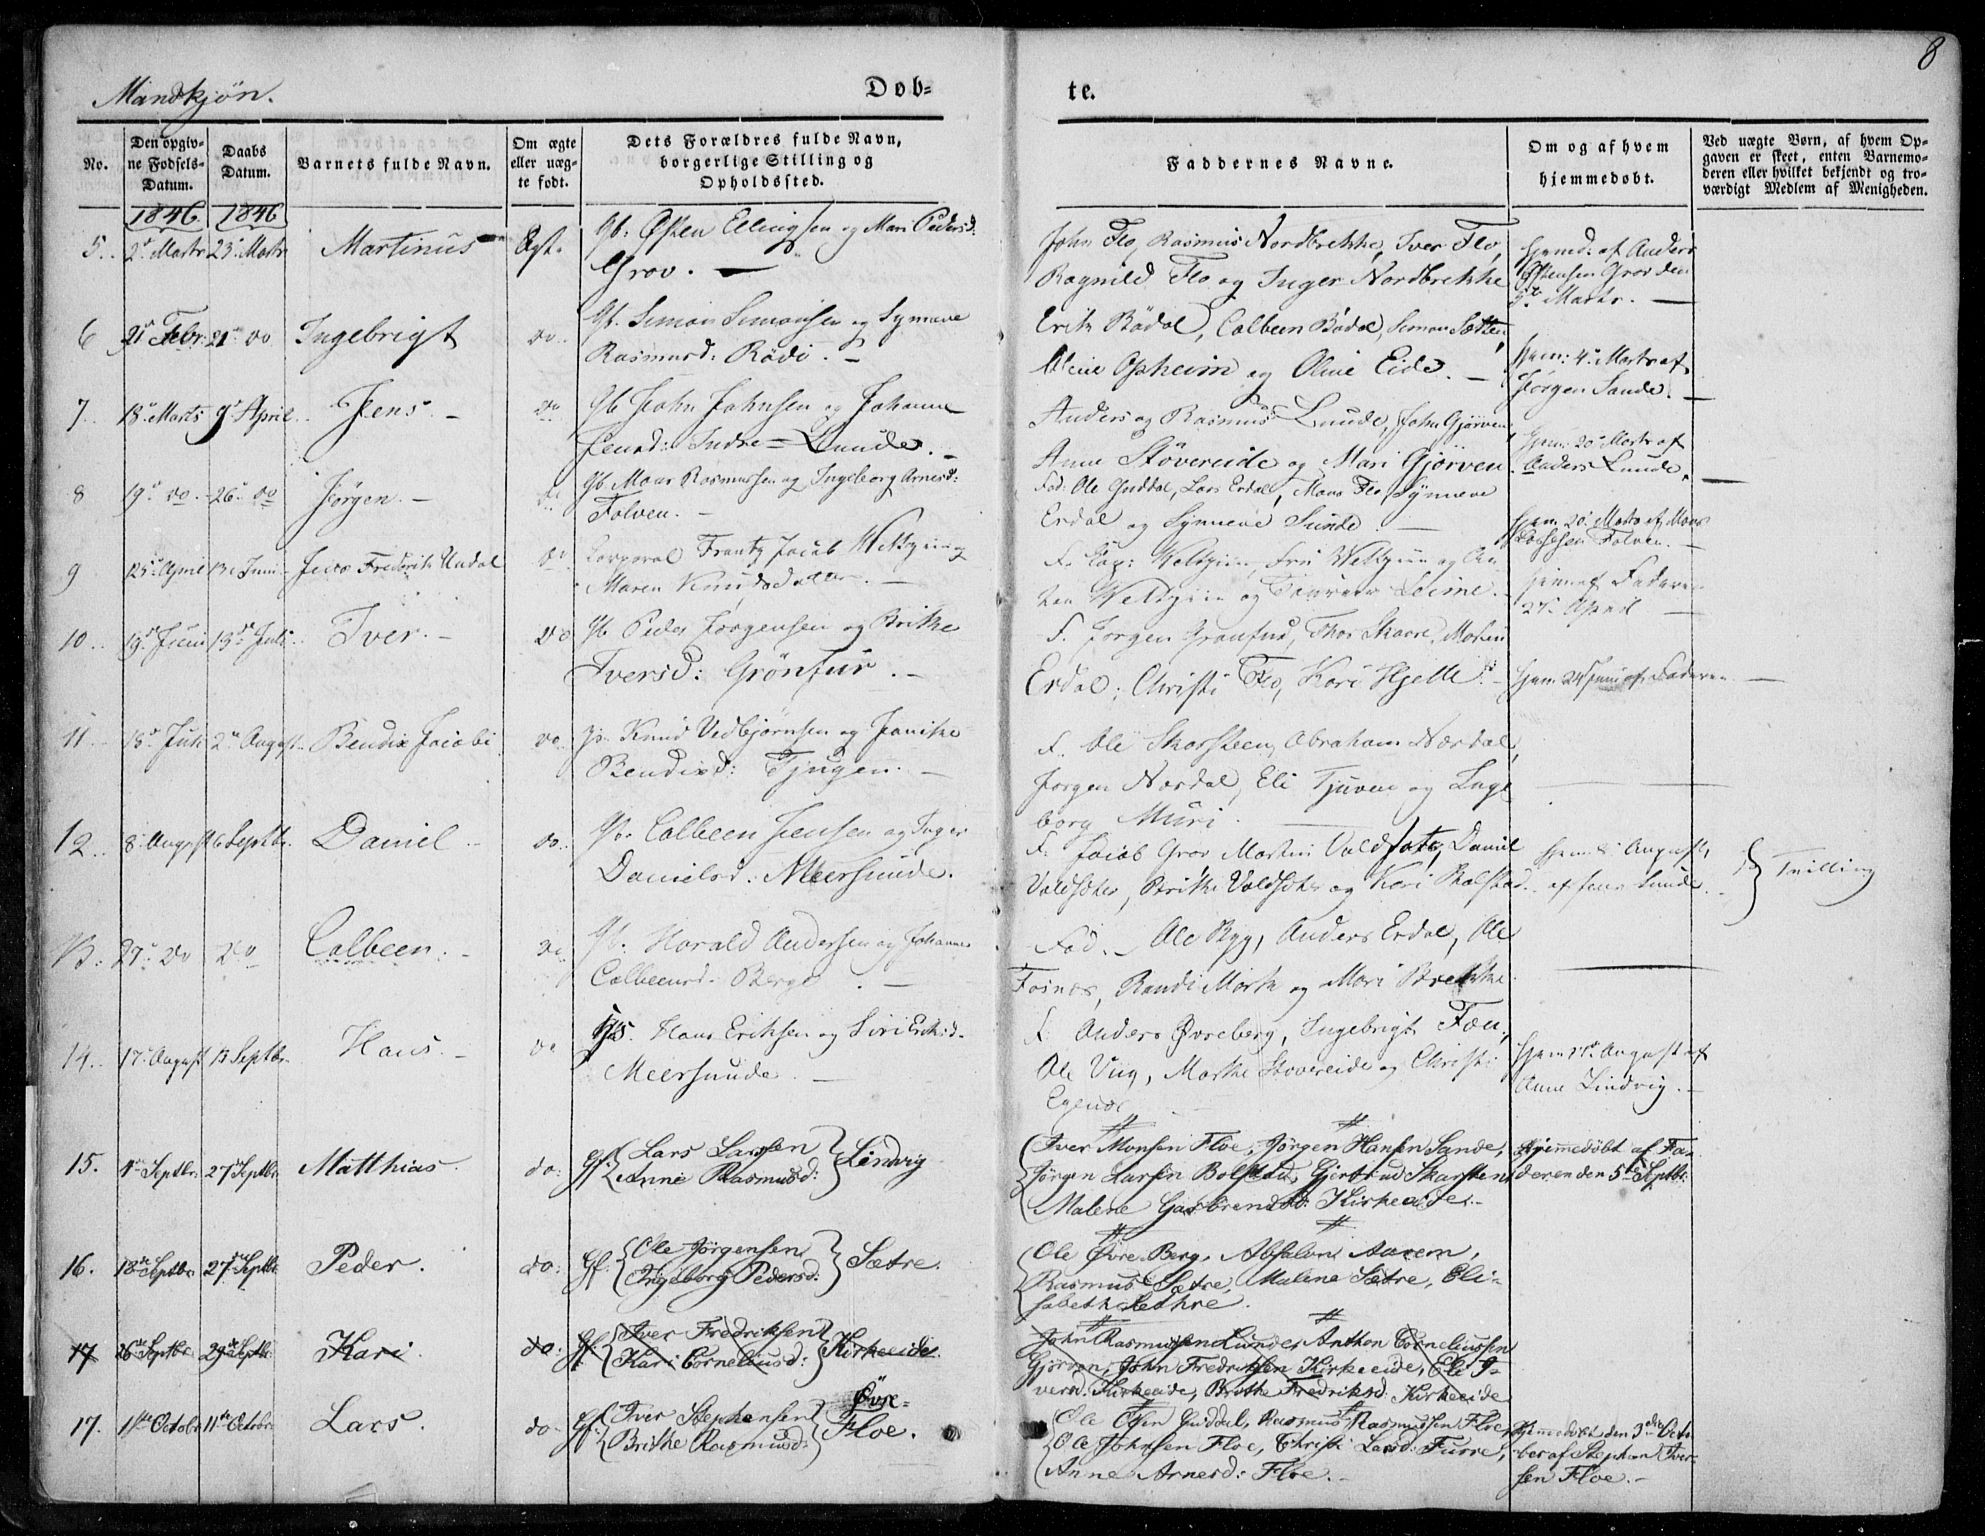 8
Mandkjøn.
Døb- te.
No.
Den opgiv-
ne Fødsels-
Datum.
Daabs
Datum.
Barnets fulde Navn.
Om ægte
eller uæg-
te født.
Dets Forældres fulde Navn,
borgerlige Stilling og
Opholdssted.
Faddernes Navne.
Om og af hvem
hjemmedøbt.
Ved uægte Børn, af hvem Op-
gaven er skeet, enten Barnemo-
deren eller hvilket bekjendt og tro-
værdigt Medlem af Menigheden.
1846 1846
5. 2d Marts 23d Marts Martinus Egt.
Gb: Østen Ellingsen og Mari Pedersd:
Grov.
John Flo, Rasmus Nordbrekke, Iver Flo,
Ragnild Flo og Inger Nordbrekke
Hjemd: af Anders
Østensen Grov den
Marts.
6 21d Febr: 21d do Ingebrigt do
Gb. Simon Simonsen og Synneve
Rasmusd: Rødi.
Erik Bødal, Colbeen Bødal, Simon Sætten,
Oline Opheim og Oline Eide.
Hjem: 4d Marts af
Jørgen Sande.
7. 18d Marts 9d April Jens. do
Gb John Johnsen og Johanne
Jensd: Indre=Lunde.
Anders og Rasmus Lunde, John Gjørven,
Anne Støvereide og Mari Gjørven
Hjem: 20d Marts af
Anders Lunde.
8 19d do. 26d do Jørgen. do
Gb. Mons Rasmussen og Ingeborg Arnesd:
Folven.
Fad: Ole Guddal, Lars Erdal, Mons Flo, Synneve
Erdal og Synneve Sunde.
Hjem 20d Marts af Mons
Folven.
9 25d April Juni Jens Frederik Undal do
Corporal Frantz Jacob og
Maren Knudsdatter.
F. Cap: Fru og
og Leime.
Hjem af Faderen
27d April
10. 19d Juni 13d Juli Iver. do
Gb Peder Jørgensen og Brithe
Iversd: Grönfur.
F. Jørgen Thor Skaare, Morten
Erdal, Christi Flo, Kari Hjelle.
Hjem 24d Juni af Faderen.
11. 18d Juli 2d August Bendix Jacobi do
Knud Vedbjørnsen og
Bendixd: Tjugen.
F. Ole Skarsteen, Abraham Nordal,
Jørgen Nordal, Eli Tjuven og Inge
borg Muri.
12. 8d August 6 Septbr. Daniel do.
Gb. Colbeen Jensen og Inger
Danielsd: Meersunde.
F. Jacob Grov, Morten Valdsæte, Daniel
Valdsæter, Brithe Valdsæter og Kari Bolstad.
Hjem 8 August
af Jens Sunde.
Tvilling
13. 27d do do Colbeen. do
Gb. Harald Andersen og Johanne
Colbeensd. Berge.
Fad. Ole Ryg, Anders Erdal, Ole
Fosnes, Randi Mork og Mari Brekke
14. 17d August 13 Septbr. Hans. do
Hans Eriksen og Siri Eriksd.
Meersunde.
F. Anders Øvreberg, Ingebrigt
Ole Vug, Marthe Støvereide og Christi
Egenæs
Hjem 17d August af
Anne Lindvig.
15. 1ste Septbr. 27de Septbr. Matthias. do. Gf.
Lars Larssen
Anne Rasmusd: Lindvig
Iver Monsen Floe, Jørgen Hansen Sande,
Jørgen Larsen Bolstad, Gjertrud Skarsten,
Malene Garbrandsd: Kirkeeide.
Hjemmedøbt af Fa-
deren den 5te Septbr.
16. 18de Septbr. 27de Septbr. Peder. do. Gf.
Ole Jørgensen
Ingeborg Pedersd: Sætre.
Ole Øvre Berg, Absalon Aarem,
Rasmus Sætre, Malene Sætre, Eli-
sabeth Sæthre.
17 26de Septbr 29de Septbr. Kari. do. Gf.
Iver Fredriksen
Kari Corneliusd: Kirkeeide.
John Rasmussen Lunde, Anthon Corneliussen
Gjørven, John Fredriksen Kirkeeide, Eli I-
versd. Kirkeeide, Brithe Fredriksd. Kirkeeide
17. 1ste Octobr 11te Octobr Lars. do. Gf.
Iver Stephensen
Brithe Rasmusd: Øvre-
Floe.
Ole Olsen Guddal, Rasmus Rasmussen Floe,
Ole Johnsen Floe, Christi Larsd: Furre,
Anne Arnesd: Floe.
Hjemmedøbt den 3die Octo-
ber af Stephan Iver-
sen Floe.